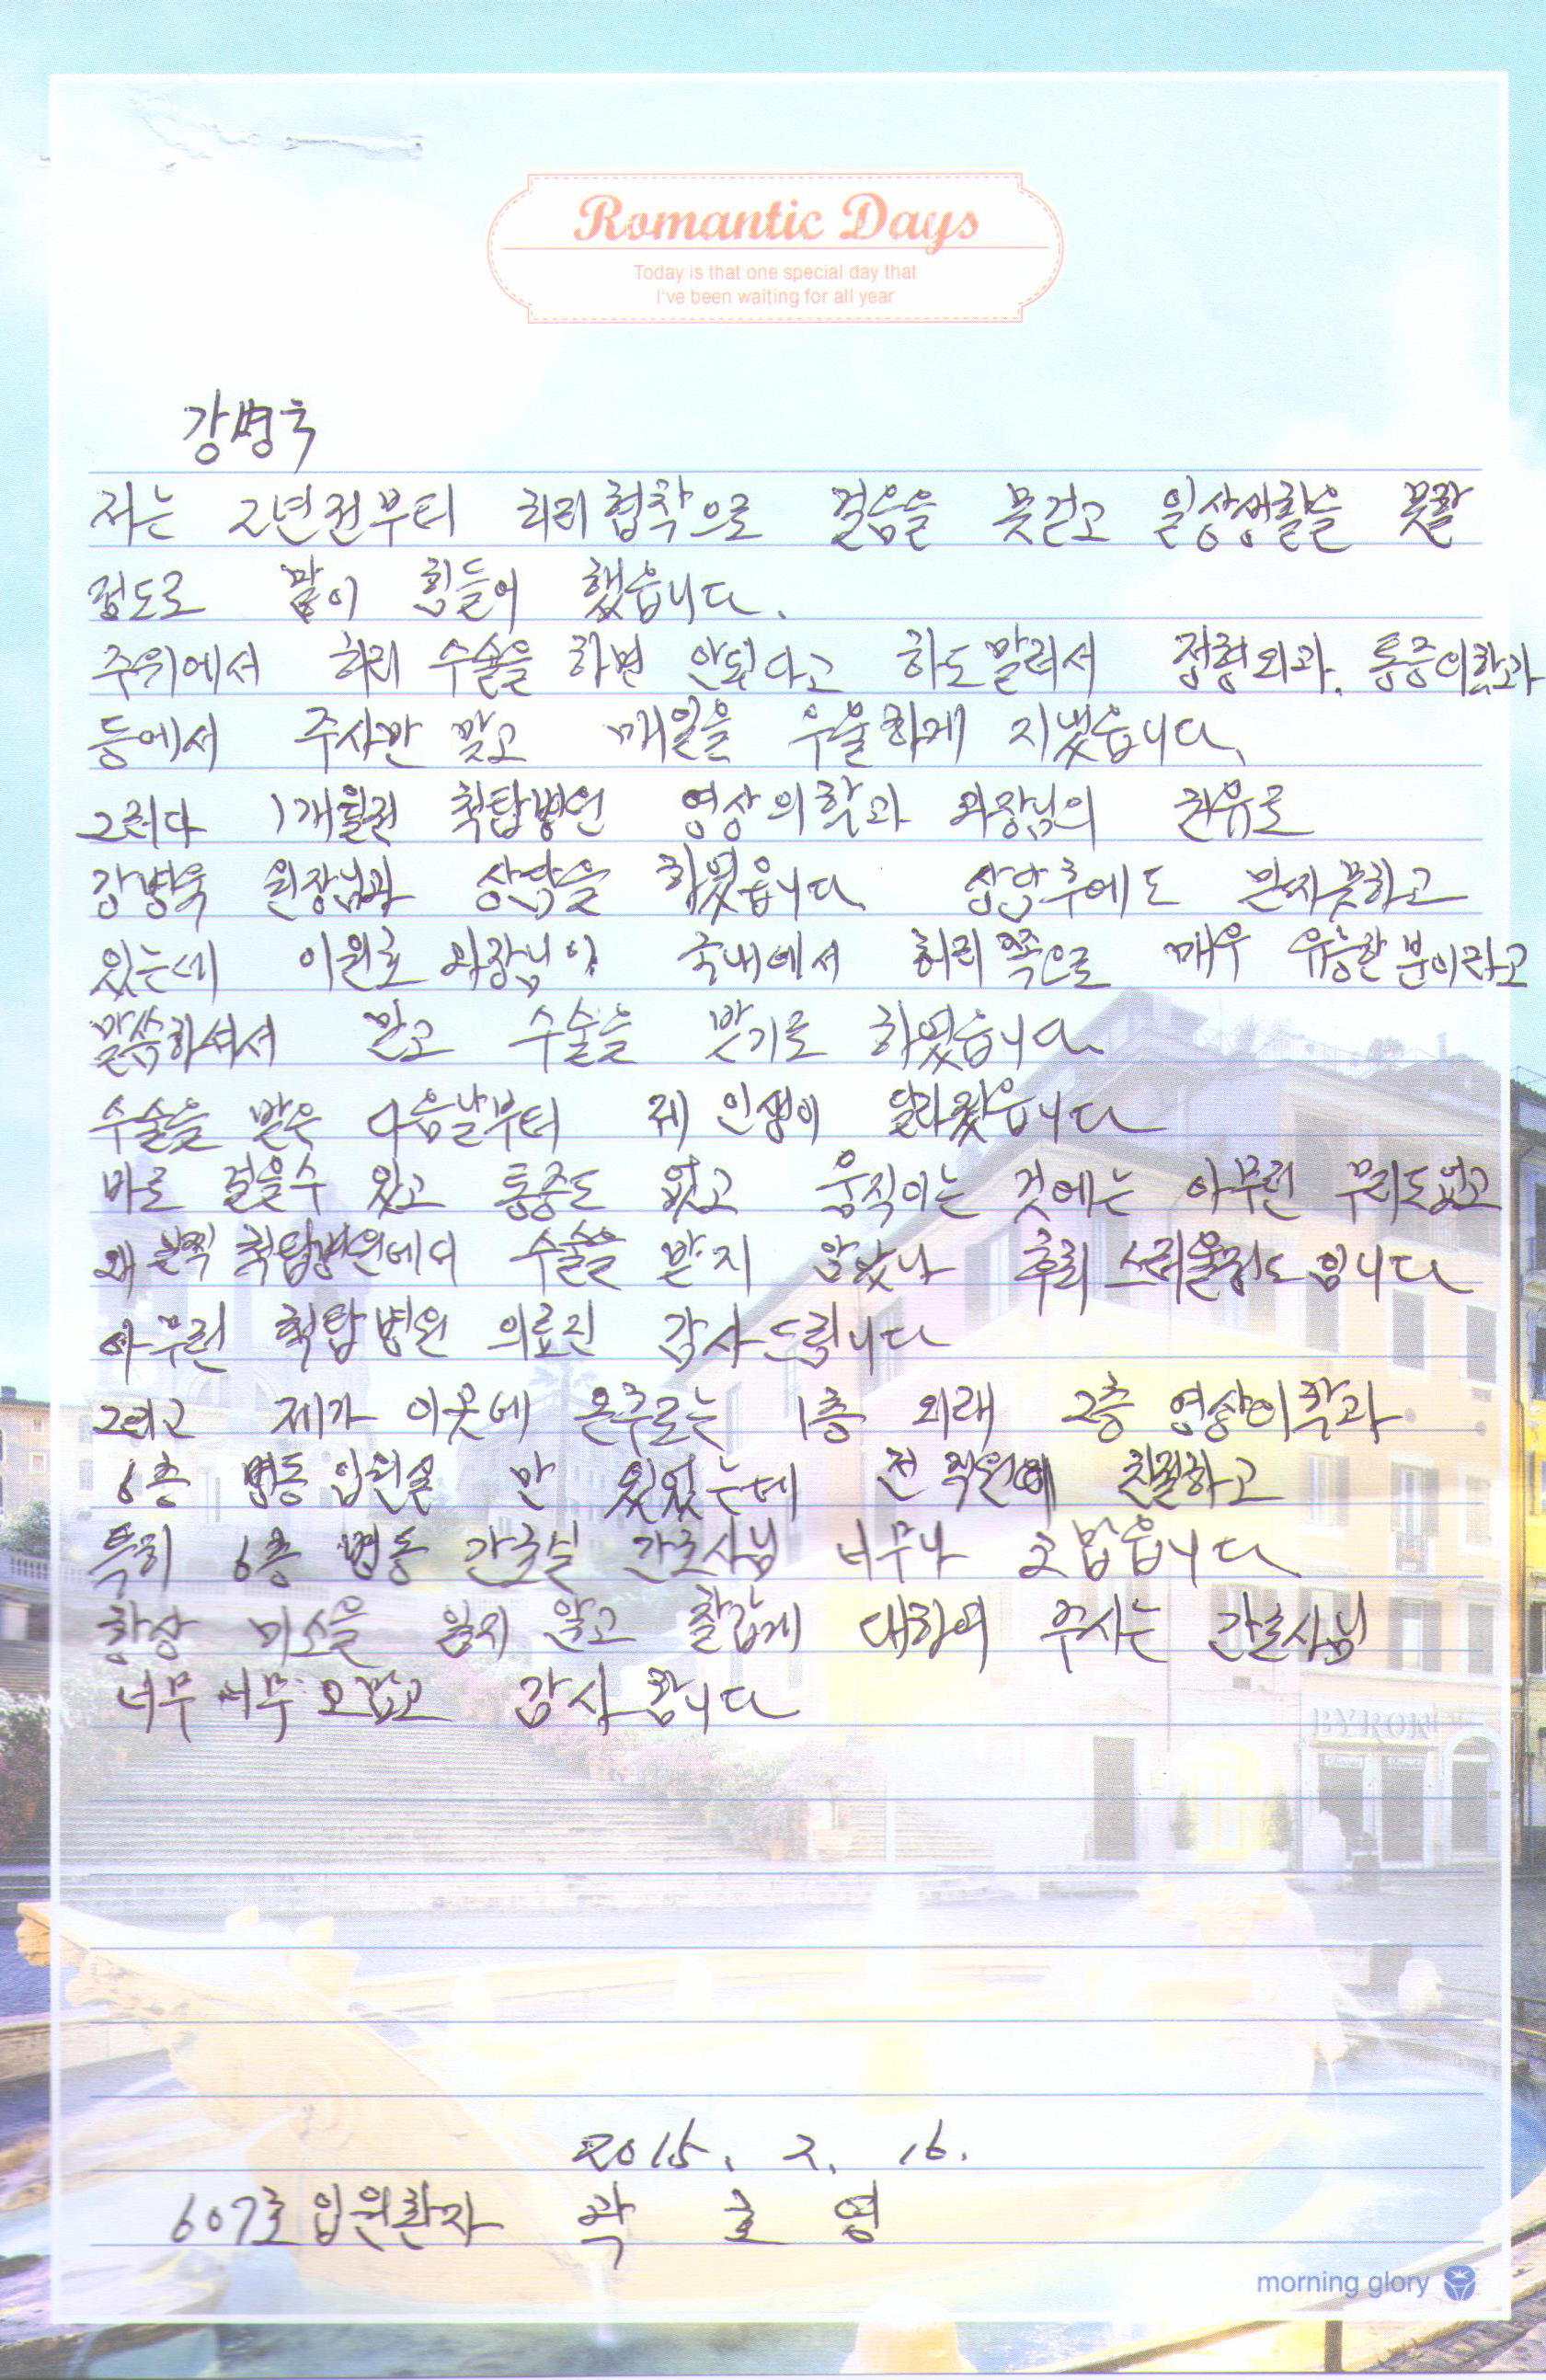 Romantic Days
Today is that one special day that
I've been waiting for all year
강병욱
저는 2년전부터 허리협착으로 걸음을 못걷고 일상생활을 못할
정도로 많이 힘들어 했읍니다.
주위에서 허리 수술을 하면 안된다고 하도말려서 정형외과, 통증의학과
등에서 주사만 맞고 매일을 우울하게 지냈읍니다.
그러다 1개월전 척탑병원 영상의학과 과장님의 권유로
강병욱 원장님과 상담을 하였읍니다 상담후에도 믿지못하고
있는데 이원호 과장님이 국내에서 허리쪽으로 매우 유능한분이라고
말씀하셔서 믿고 수술을 받기로 하였읍니다.
수술을 받은 다음날부터 제 인생이 달라졌읍니다
바로 걸을수 있고 통증도 없고 움직이는 것에는 아무런 무리도없고
왜 일찍 척탑병원에서 수술을 받지 않았나 후회 스러울정도 입니다
아무런 척탑병원 의료진 감사드립니다
그리고 제가 이곳에 온후로는 1층 외래 2층 영상의학과
6층 병동 입원실 만 있었는데 전 직원이 친절하고
특히 6층 병동 간호실 간호사님 너무나 고맙읍니다
항상 미소을 잃지 않고 살갑게 대하여 주시는 간호사님
너무 너무 고맙고 감사 합니다
2015. 2. 16.
607호 입원환자 곽 호 영
morning glory